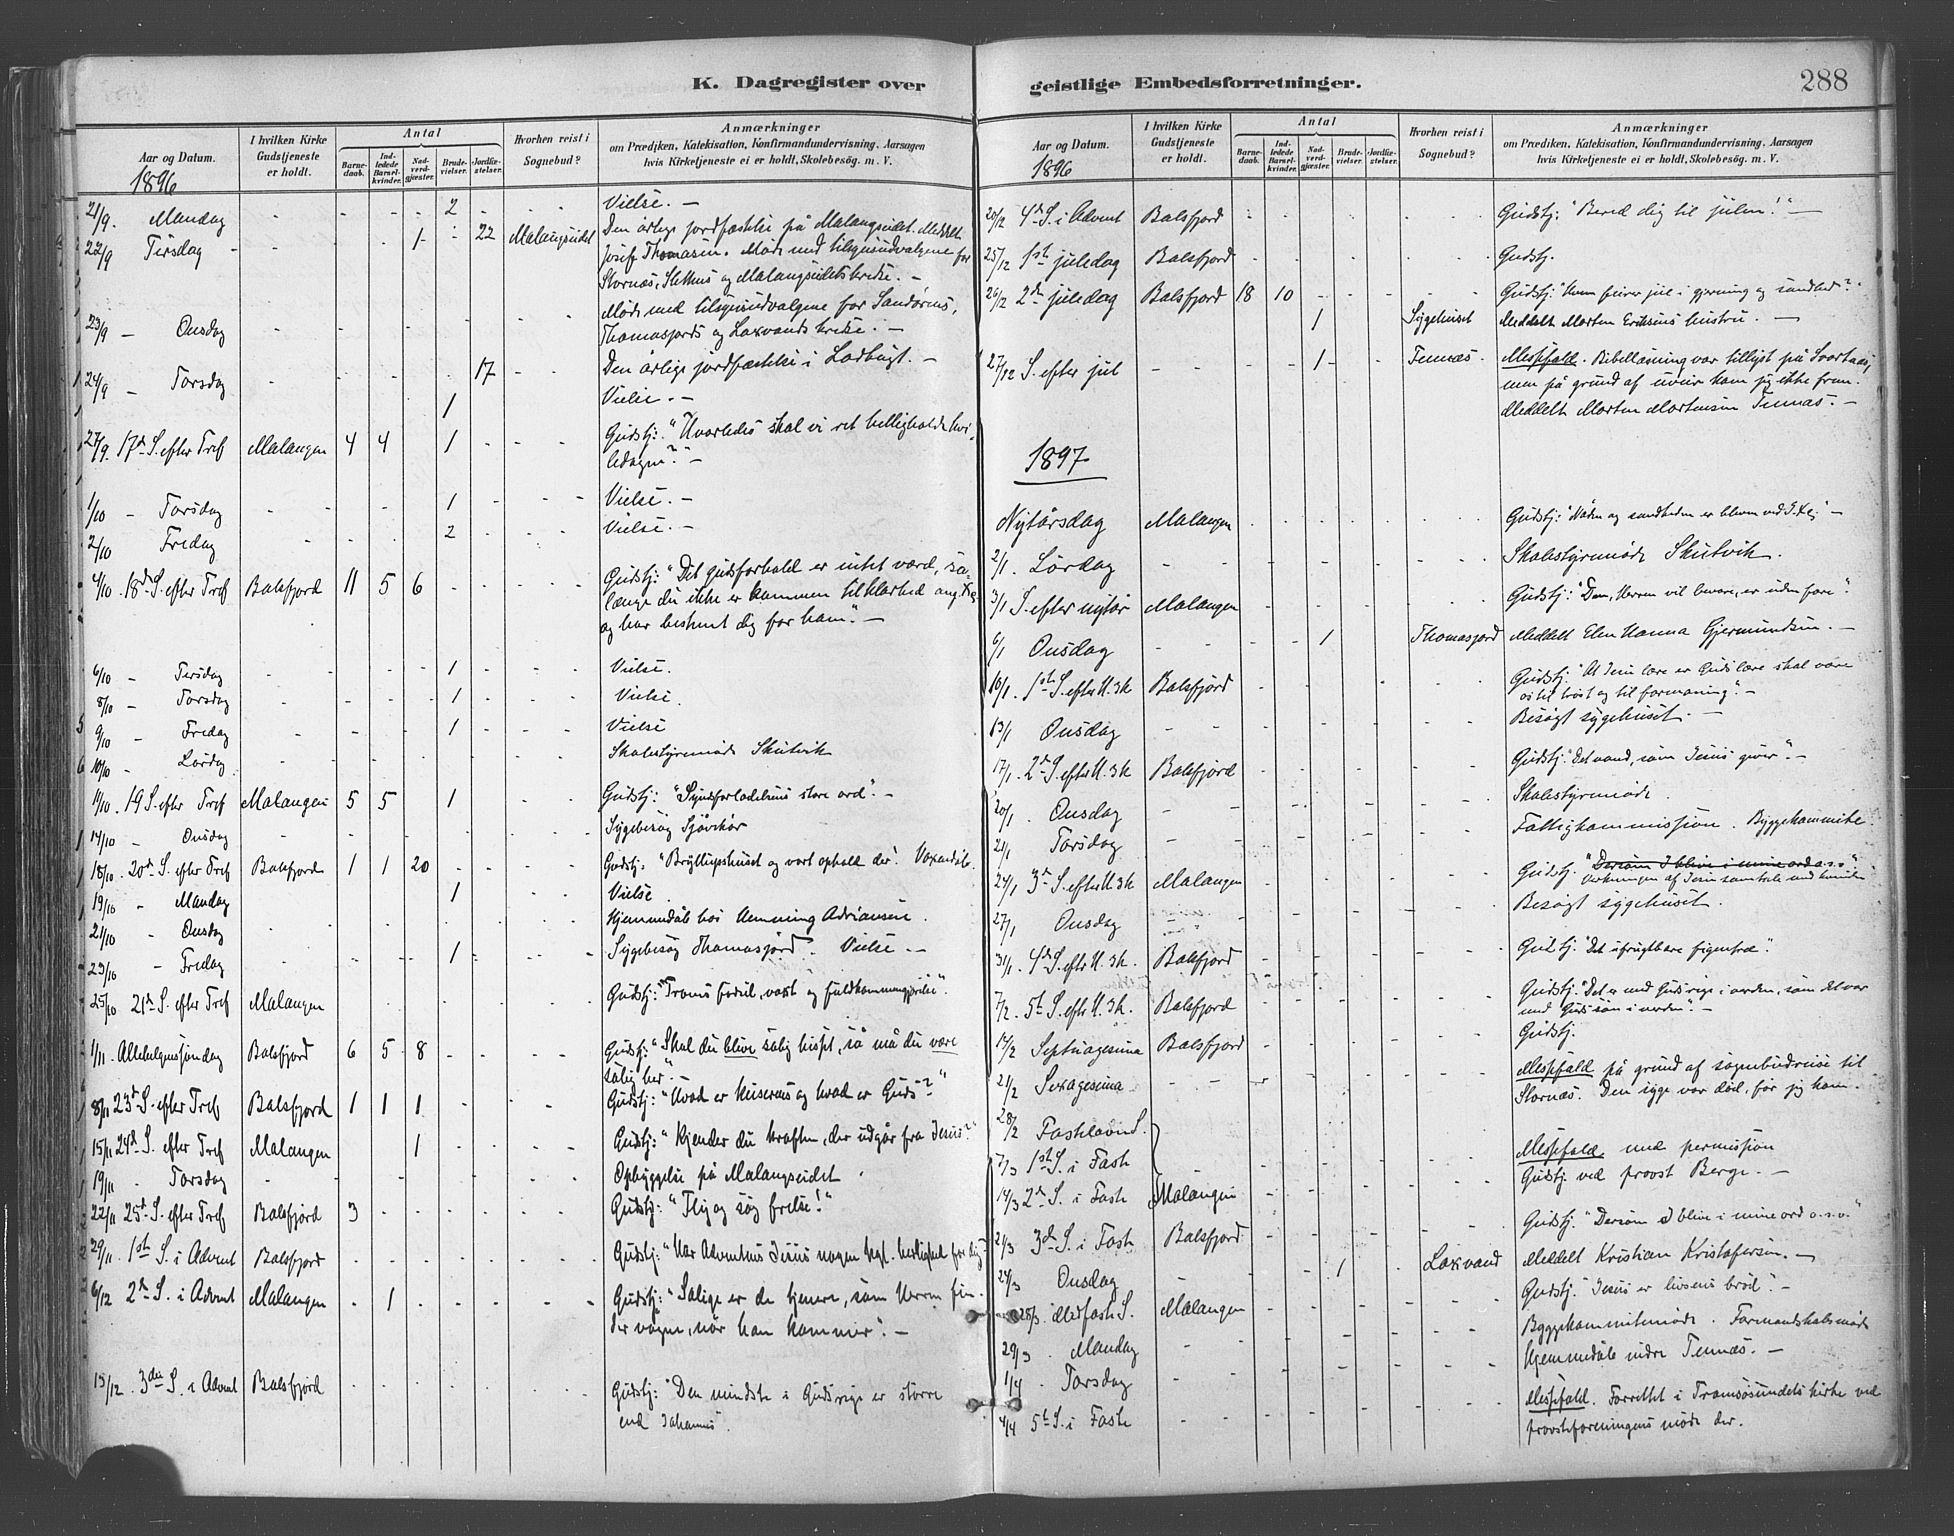 K. Dagregister over
Aar og Datum.
I hvilken Kirke Gudstjeneste er holdt.
Antal
Barnedaab.
Indledede Barselkvinder.
Nadverdgjæster.
Brudevielser.
Jordfæstelser.
Hvorhen reist i Sognebud?
Anmærkninger
om Prædiken, Katekisation, Konfirmandundervisning, Aarsagen
hvis Kirketjeneste ei er holdt, Skolebesøg. m. V.
1896
21/9. Mandag - - - - 2 - - - Vielse. -
22/9 Tirsdag - - - 1 - 22 Malangseidet Den årlige jordfæstelse på Malangseidet. Meddelt
Josef Thomasen. Møde med tilsynsudvalgene for
Stornæs, Slettnes og Malangseidets kredse. -
23/9 - Onsdag Møde med tilsynsudvalgene for Sandørnes,
Thomasjords og Laxvands kredse. -
24/9 - Torsdag 17 Den årlige jordfæstelse i Ladbugt. -
1 Vielse. -
27/9. 17d S. efter Tref Malangen 4 4 1 Gudstj: "Hvorledes skal vi ret helligholde hvi-
ledagen?" -
1/10 - Torsdag 1 Vielse. -
2/10 Fredag 2 Vielse. -
4/10. 18d S. efter Tref Balsfjord 11 5 6 Gudstj: "Dit gudsforhold er intet værd, så-
længe du ikke er kommen til klarhed ang.
og har bestemt dig for ham". -
6/10 - Tirsdag 1 Vielse.
8/10 - Torsdag 1 Vielse.
9/10 - Fredag 1 Vielse
10/10 - Lørdag Skolestyremøde Skutvik
11/10. 19 S. efter Tref Malangen 5 5 1 Gudstj: "Syndsforladelsens store ord". -
14/10 - Onsdag Sygebesøg Sjøvikør
18/10. 20d S. efter Tref Balsfjord 1 1 20 Gudstj: "Bryllupshuset og vort ophold der". Voxendåb.
19/10 - Mandag 1 Vielse
21/10 - Onsdag Hjemmedåb hos Hemming Adriansen.
23/10 - Fredag 1 Sygebesøg Thomasjord. Vielse -
25/10 21d S. efter Tref Malangen Gudstj: "Troens fødsel, vext og fuldkommengjørelse".
1/11. Allehelgenssøndag Balsfjord 6 5 8 Gudstj: "Skal du blive salig hisset, så må du være
salig her". -
8/11 23d S. efter Tref Balsfjord 1 1 1 Gudstj: "Hvad er keiserens og hvad er Guds?"
15/11 24d S. efter Tref Malangen 1 Gudstj: "Kjender du kraften, der udgår fra Jesus?"
19/11 - Torsdag Opbyggelse på Malangseidet
22/11 25d S. efter Tref Balsfjord 3 Gudstj: "Fly og søg frelse!"
29/11. 1st S. i Advent Balsfjord Gudstj: "Har Adventens Jesus nogen kgl. herlighed for dig"
6/12 2d S. i Advent Malangen 1 Gudstj: "Salige er de tjenere, som Herren fin-
der vågne, når han kommer". -
13/12. 3die S. i Advent Balsfjord Gudstj: "Den mindste i Guds rige er større
end Johannes".
geistlige Embedsforretninger.
288
Aar og Datum.
I hvilken Kirke Gudstjeneste er holdt.
Antal
Barnedaab.
Indledede Barselkvinder.
Nadverdgjæster.
Brudevielser.
Jordfæstelser.
Hvorhen reist i Sognebud?
Anmærkninger
om Prædiken, Katekisation, Konfirmandundervisning, Aarsagen
hvis Kirketjeneste ei er holdt, Skolebesøg. m. V.
1896
20/12 4d S. i Advent Balsfjord Gudstj: "Bered dig til julen!" -
25/12 1st juledag Balsfjord Gudstj.
26/12 2d juledag Balsfjord 18 10 Gudstj: "Hvem feirer jul i gjerning og sandhed?"
1 Sygehuset Meddelt Morten Eriksens hustru. -
27/12 S. efter jul 1 Tennæs. Messefald. Bibellæsning var tillyst på Svartnæs,
men på grund af uveir kom jeg ikke frem.
Meddelt Morten Mortensen Tennæs. -
1897
Nytårsdag Malangen Gudstj: "Nåden og sandheden er bleven ved J. Kr." -
2/1. Lørdag Skolestyremøde Skutvik.
3/1 S. efter nytår Malangen Gudstj: "Den, Herren vil bevare, er uden fare".
6/1 Onsdag 1 Thomasjord Meddelt Elen Hanna Gjermundsen. -
10/1. 1st S. efter H.3K Balsfjord Gudstj: "At Jesu lære er Guds lære skal være
os til trøst og til formaning". -
13/1 Onsdag Besøgt sygehuset. -
17/1. 2d S. efter H.3K Balsfjord Gudstj: "Det vand, som Jesus giver". -
20/1. Onsdag Skolestyremøde.
21/1 Torsdag Fattigkommission. Byggekommite.
24/1 3d S. efter H.3K Malangen Gudstj. "Dersom I blive i mine ord o.s.v."
Virkningen af Jesu samtale med kvinden
27/1 Onsdag Besøgt sygehuset.
31/1. 4d S. efter H.3K. Balsfjord Gudstj: "Det ufrugtbare figentræ".
7/2. 5t S. efter H.3K. Balsfjord Gudstj: "Det er med Guds rige i verden, som det var
med Guds søn i verden". -
14/2 Septuagesima Balsfjord Gudstj.
21/2 Sexagesima Messefald på grund af sognebudreise til
Stornæs. Den syge var død, før jeg kom.
28/2 Fastelavns S.
7/3 1st S. i Fast. Messefald med permission
14/3 2d S. i Faste Malangen Gudstj. ved provst Berge. -
21/3 3d S. i Fast Balsfjord. Gudstj: "Dersom I blive i mine ord o.s.v."
24/3 Onsdag 1 Laxvand Meddelt Kristian Kristofersen. -
28/3. Midfaste S. Malangen Gudstj: "Jesus er livsens brød". -
29/3. Mandag Byggekommitemøde. Formandskabsmøde
1/4. Torsdag Hjemmedåb indre Tennæs. -
4/4 5t S. i Faste Messefald. Forrettet i Tromsøsundets kirke ved
provsteforeningens møde der.